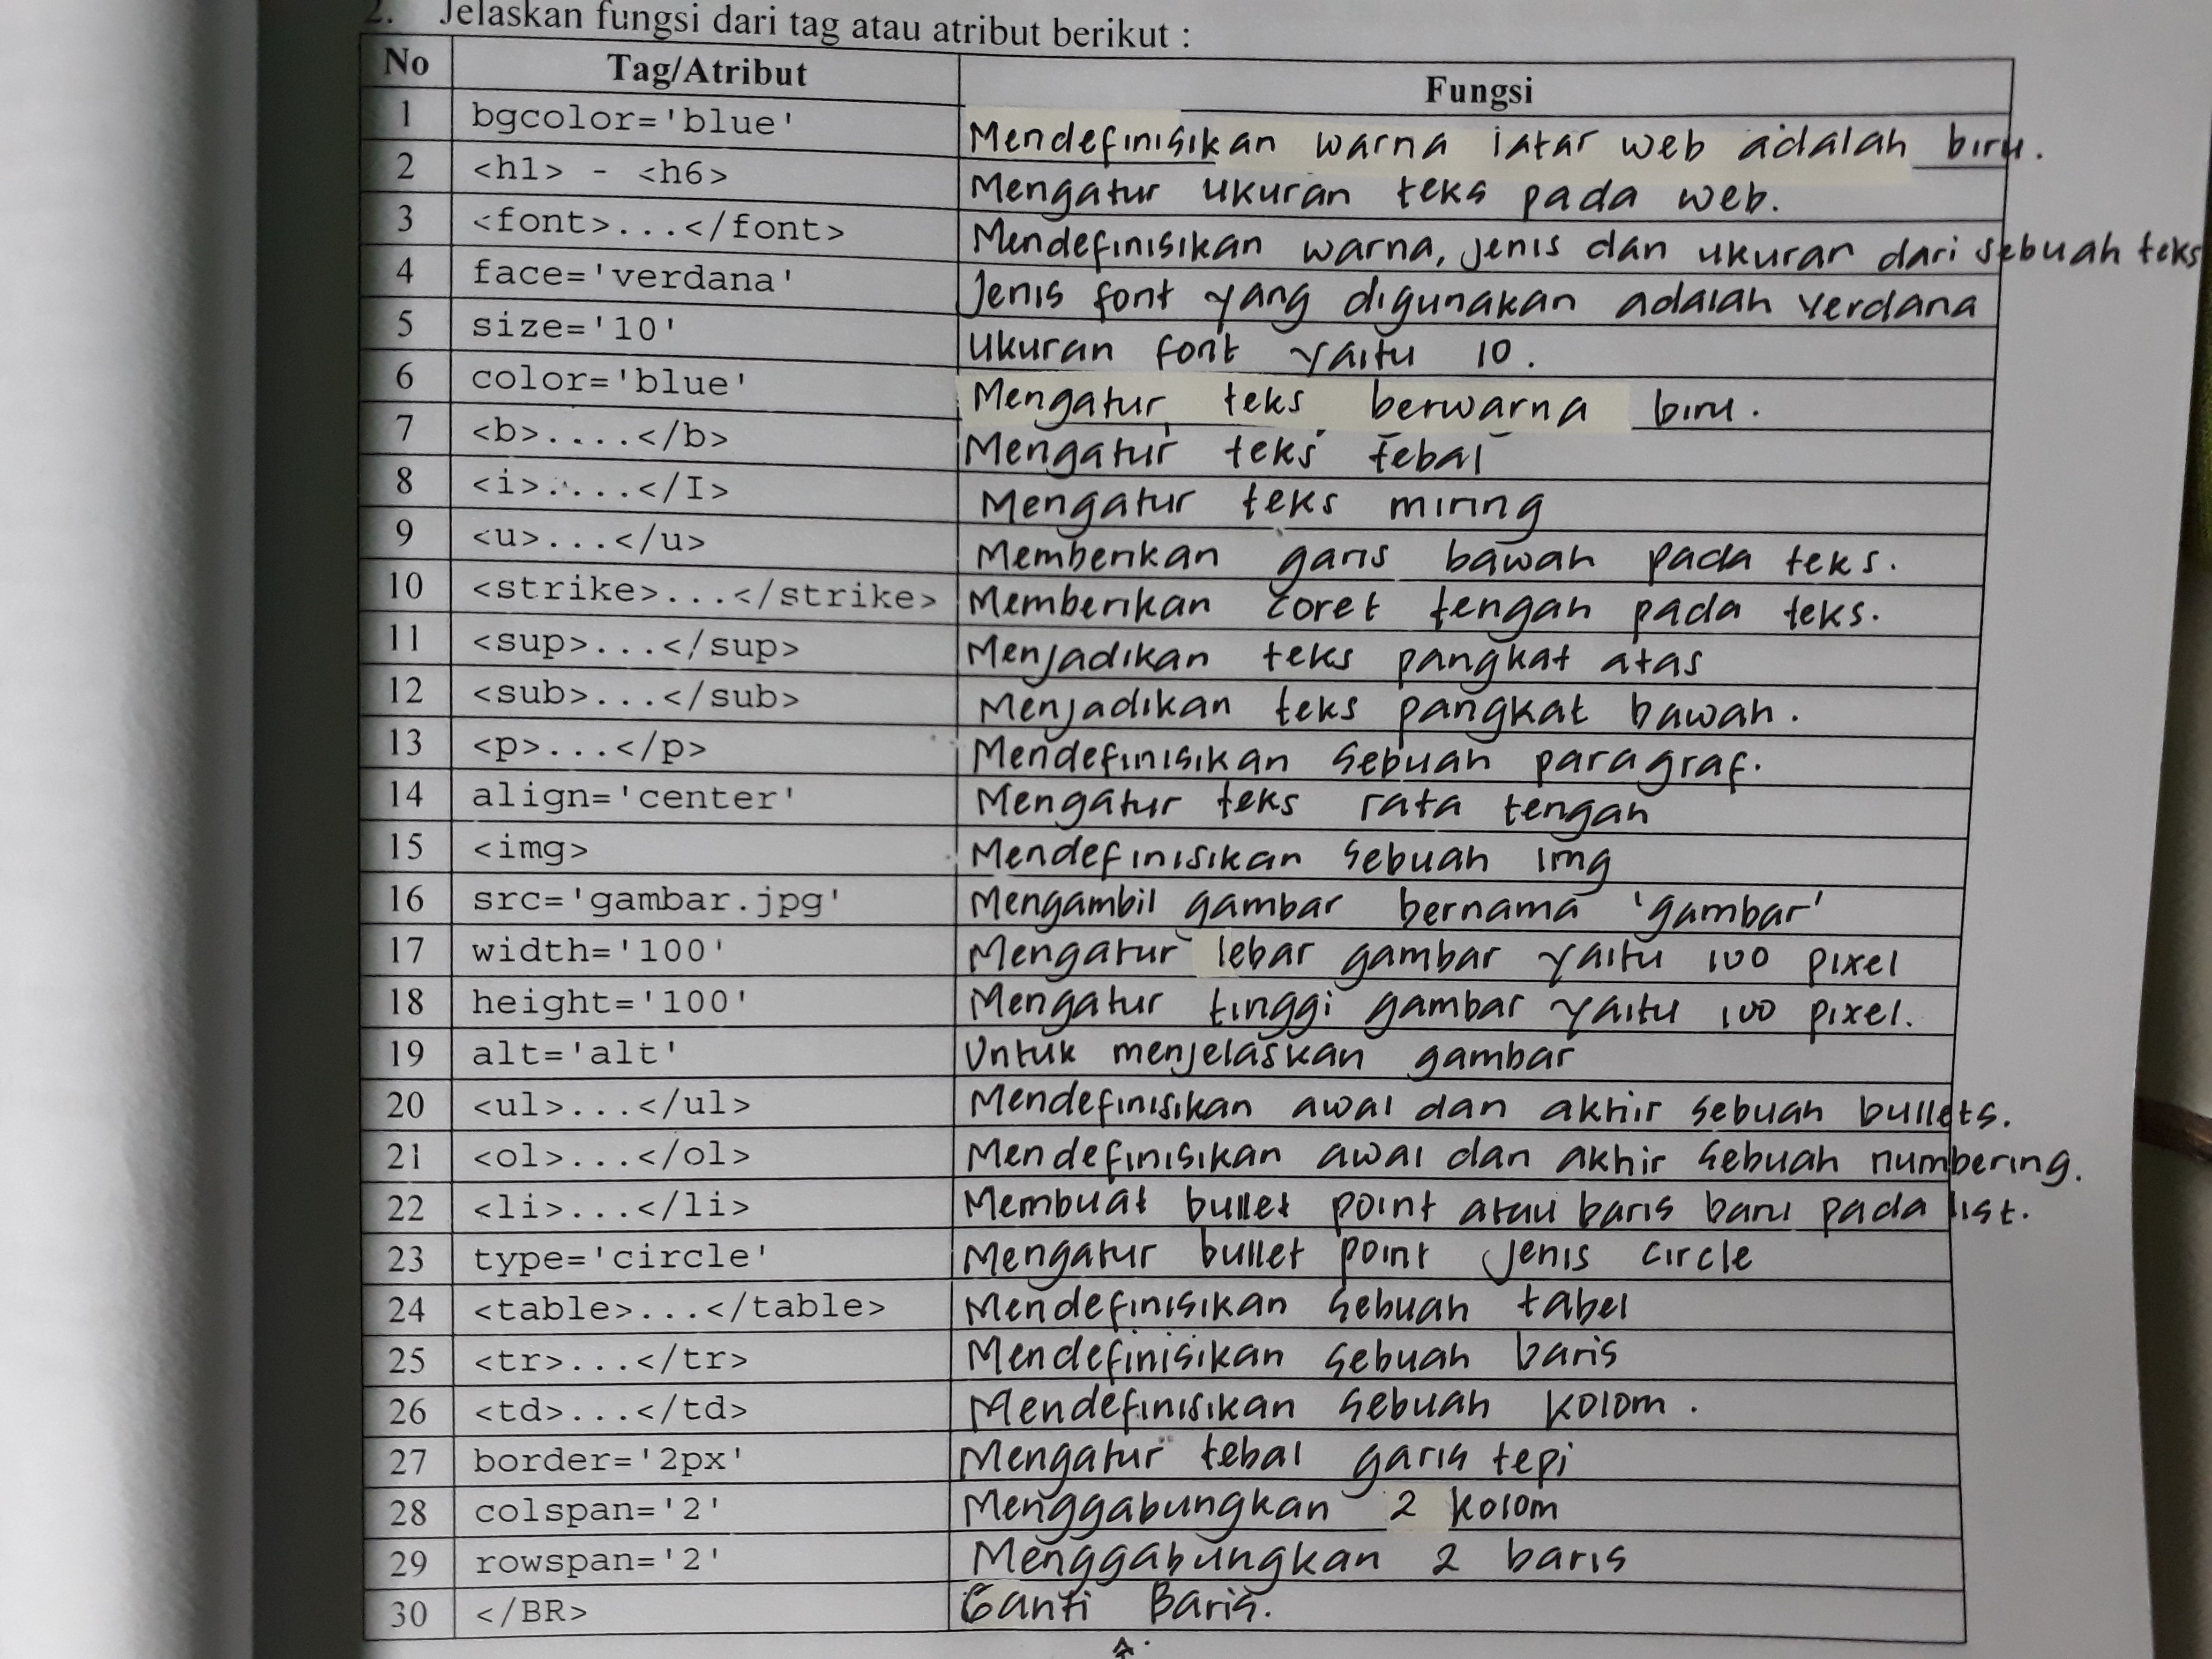 2. Jelaskan fungsi dari tag atau atribut berikut :
No Tag/Atribut Fungsi
1 bgcolor='blue' Mendefinisikan warna latar web adalah biru.
2 <h1> - <h6> Mengatur ukuran teks pada web.
3 <font>...</font> Mendefinisikan warna, jenis dan ukuran dari sebuah teks
4 face='verdana' Jenis font yang digunakan adalah verdana
5 size='10' Ukuran font yaitu 10.
6 color='blue' Mengatur teks berwarna biru.
7 <b>....</b> Mengatur teks tebal
8 <i>.....</I> Mengatur teks miring
9 <u>...</u> Memberikan garis bawah pada teks.
10 <strike>...</strike> Memberikan coret tengah pada teks.
11 <sup>...</sup> Menjadikan teks pangkat atas
12 <sub>...</sub> Menjadikan teks pangkat bawah.
13 <p>...</p> Mendefinisikan sebuah paragraf.
14 align='center' Mengatur teks rata tengah
15 <img> Mendefinisikan sebuah img
16 src='gambar.jpg' Mengambil gambar bernama 'gambar'
17 width='100' Mengatur lebar gambar yaitu 100 pixel
18 height='100' Mengatur tinggi gambar yaitu 100 pixel.
19 alt='alt' Untuk menjelaskan gambar
20 <ul>...</ul> Mendefinisikan awal dan akhir sebuah bullets.
21 <ol>...</ol> Mendefinisikan awal dan akhir sebuah numbering.
22 <li>...</li> Membuat bullet point atau baris baru pada list.
23 type='circle' Mengatur bullet point jenis circle
24 <table>...</table> Mendefinisikan sebuah tabel
25 <tr>...</tr> Mendefinisikan sebuah baris
26 <td>...</td> Mendefinisikan sebuah kolom.
27 border='2px' Mengatur tebal garis tepi
28 colspan='2' Menggabungkan 2 kolom
29 rowspan='2' Menggabungkan 2 baris
30 </BR> Ganti Baris.